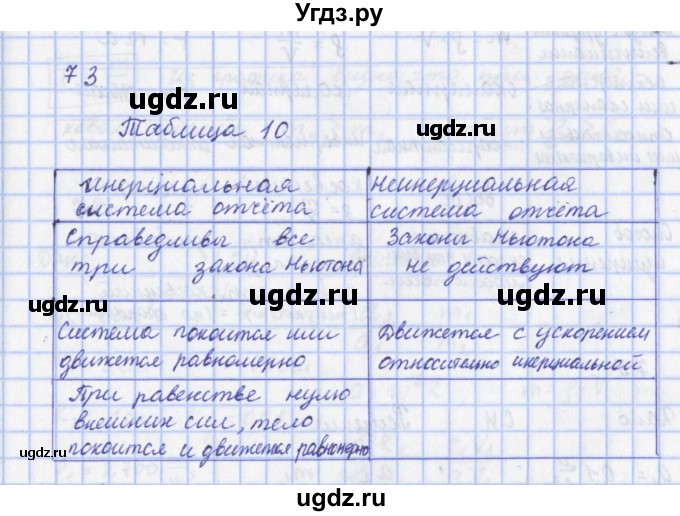 Угдз.ру
73
ugdz.ru
ugdz.ru
Таблица 10
инерциальная
система отчёта
Неинерциальная
система отчёта
Справедливы все
три закона Ньютона
Законы Ньютона
не действуют
ugdz.ru
ugdz.ru
Система покоится или
движется равномерно
Движется с ускорением
относительно инерциальной
При равенстве нулю
внешних сил, тело
покоится и движется равномерно
ugdz.ru
ugdz.ru
ugdz.ru